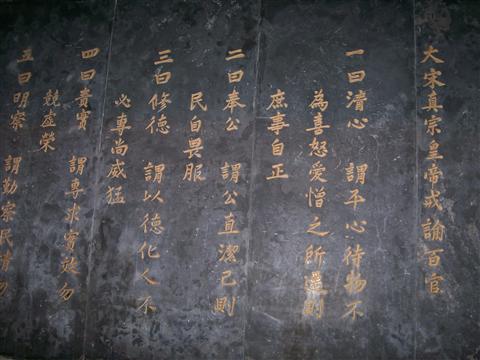 大宋真宗皇帝戒諭百官
一曰清心　謂平心待物不
為喜怒愛憎之所遷則
庶事自正
二曰奉公　謂公直潔己則
民自畏服
三曰修德　謂以德化人不
必專尚威猛
四曰責實　謂專求實效勿
競虛榮
五曰明察　謂勤察民情勿